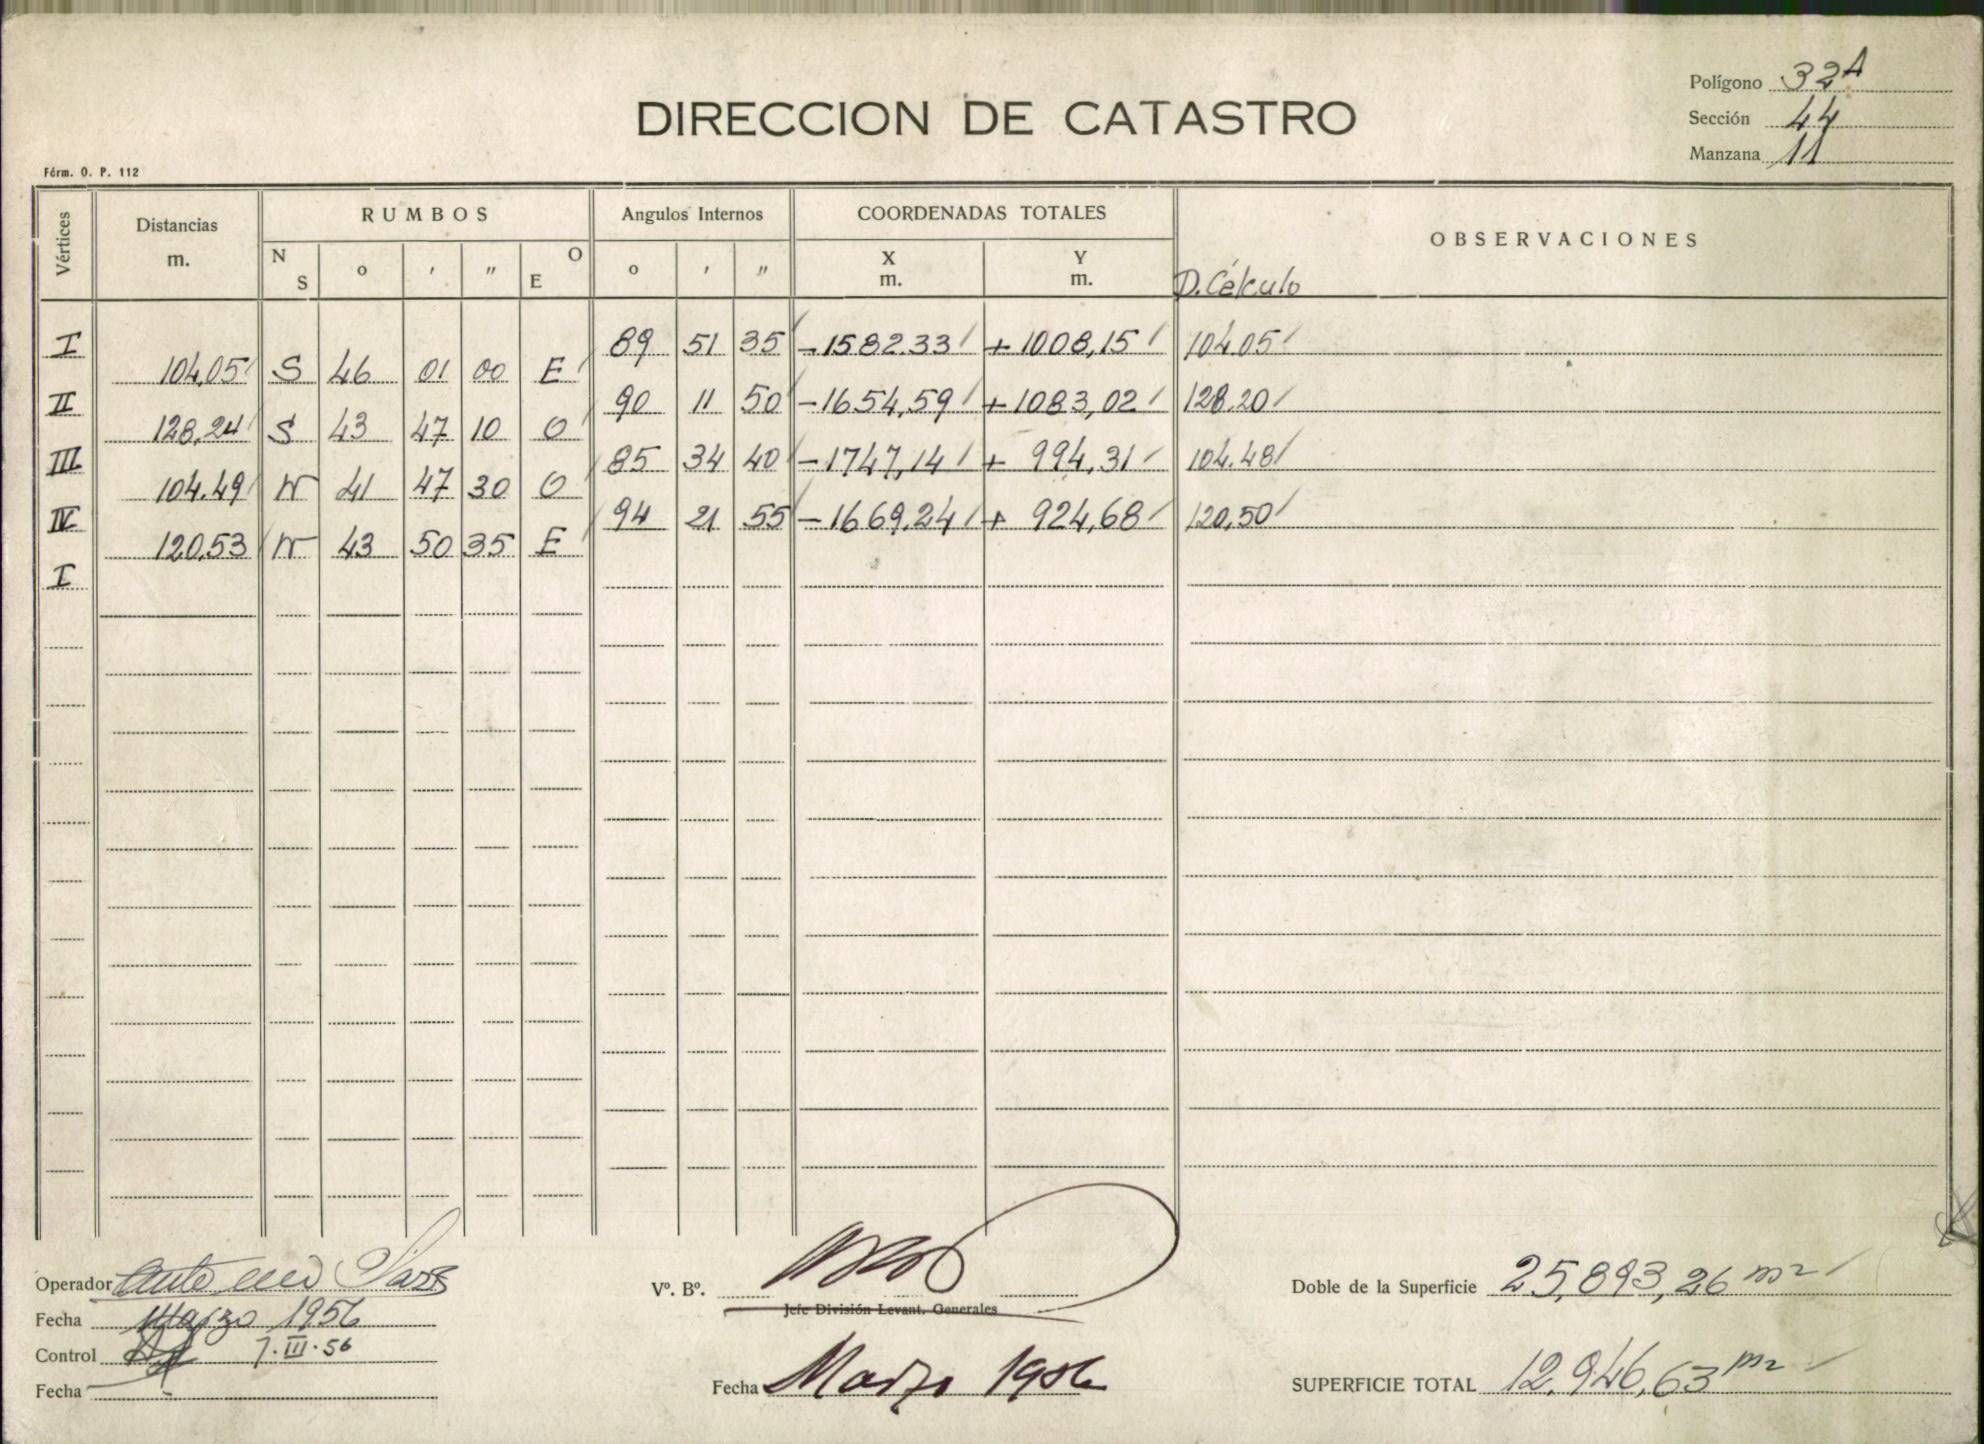 Polígono 32A
DIRECCION DE CATASTRO
Sección 44
Manzana 11
Fórm. O. P. 112
Vértices Distancias m. RUMBOS N S o ' " O E Angulos Internos o ' " COORDENADAS TOTALES X m. Y m. OBSERVACIONES
D. Cálculo
I 89 51 35 -1582.33 +1008,15 104.05
104,05 S 46 01 00 E
II 90 11 50 -1654,59 +1083,02 128.20
128,24 S 43 47 10 O
III 85 34 40 -1747,14 + 994,31 104.48
104.49 N 41 47 30 O
IV 94 21 55 -1669,24 + 924,68 120,50
120,53 N 43 50 35 E
I
Operador
Vº. Bº.
Jefe División Levant. Generales
Doble de la Superficie 25,893,26 m2
Fecha Marzo 1956
Control 7.III.56
Fecha
Fecha Marzo 1956
SUPERFICIE TOTAL 12.946,63 m2